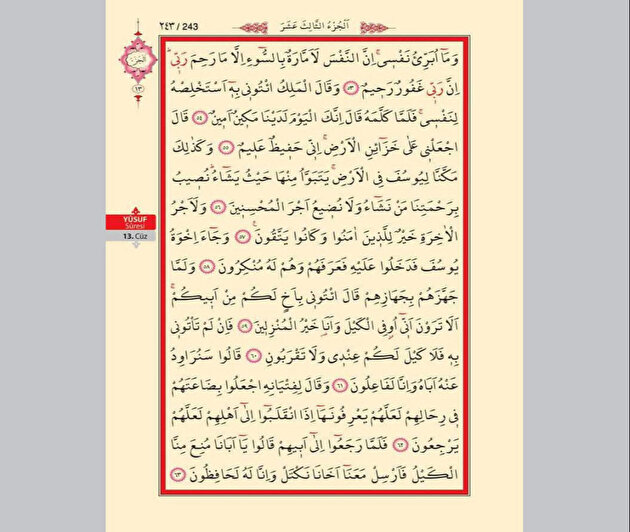 ٢٤٣ / 243
اَلْجُزْءُ الثَّالِثَ عَشَرَ
اَلْجُزْءُ
١٣
وَمَٓا اُبَرِّئُ نَفْسٖيۚ اِنَّ النَّفْسَ لَاَمَّارَةٌ بِالسُّٓوءِ اِلَّا مَا رَحِمَ رَبّٖيؕ
اِنَّ رَبّٖي غَفُورٌ رَحٖيمٌ ﴿٥٣﴾ وَقَالَ الْمَلِكُ ائْتُونٖي بِهٖٓ اَسْتَخْلِصْهُ
لِنَفْسٖيۚ فَلَمَّا كَلَّمَهُ قَالَ اِنَّكَ الْيَوْمَ لَدَيْنَا مَكٖينٌ اَمٖينٌ ﴿٥٤﴾ قَالَ
اجْعَلْنٖي عَلٰى خَزَٓائِنِ الْاَرْضِۚ اِنّٖي حَفٖيظٌ عَلٖيمٌ ﴿٥٥﴾ وَكَذٰلِكَ
مَكَّنَّا لِيُوسُفَ فِي الْاَرْضِۚ يَتَبَوَّاُ مِنْهَا حَيْثُ يَشَٓاءُؕ نُصٖيبُ
بِرَحْمَتِنَا مَنْ نَشَٓاءُ وَلَا نُضٖيعُ اَجْرَ الْمُحْسِنٖينَ ﴿٥٦﴾ وَلَاَجْرُ
الْاٰخِرَةِ خَيْرٌ لِلَّذٖينَ اٰمَنُوا وَكَانُوا يَتَّقُونَ ﴿٥٧﴾ وَجَٓاءَ اِخْوَةُ
يُوسُفَ فَدَخَلُوا عَلَيْهِ فَعَرَفَهُمْ وَهُمْ لَهُ مُنْكِرُونَ ﴿٥٨﴾ وَلَمَّا
جَهَّزَهُمْ بِجَهَازِهِمْ قَالَ ائْتُونٖي بِاَخٍ لَكُمْ مِنْ اَبٖيكُمْۚ
اَلَا تَرَوْنَ اَنّٖٓي اُوفِي الْكَيْلَ وَاَنَا خَيْرُ الْمُنْزِلٖينَ ﴿٥٩﴾ فَاِنْ لَمْ تَأْتُونٖي
بِهٖ فَلَا كَيْلَ لَكُمْ عِنْدٖي وَلَا تَقْرَبُونِ ﴿٦٠﴾ قَالُوا سَنُرَاوِدُ
عَنْهُ اَبَاهُ وَاِنَّا لَفَاعِلُونَ ﴿٦١﴾ وَقَالَ لِفِتْيَانِهِ اجْعَلُوا بِضَاعَتَهُمْ
فٖي رِحَالِهِمْ لَعَلَّهُمْ يَعْرِفُونَهَٓا اِذَا انْقَلَبُٓوا اِلٰٓى اَهْلِهِمْ لَعَلَّهُمْ
يَرْجِعُونَ ﴿٦٢﴾ فَلَمَّا رَجَعُٓوا اِلٰٓى اَبٖيهِمْ قَالُوا يَٓا اَبَانَا مُنِعَ مِنَّا
الْكَيْلُ فَاَرْسِلْ مَعَنَٓا اَخَانَا نَكْتَلْ وَاِنَّا لَهُ لَحَافِظُونَ ﴿٦٣﴾
YÛSUF
Sûresi
13. Cüz